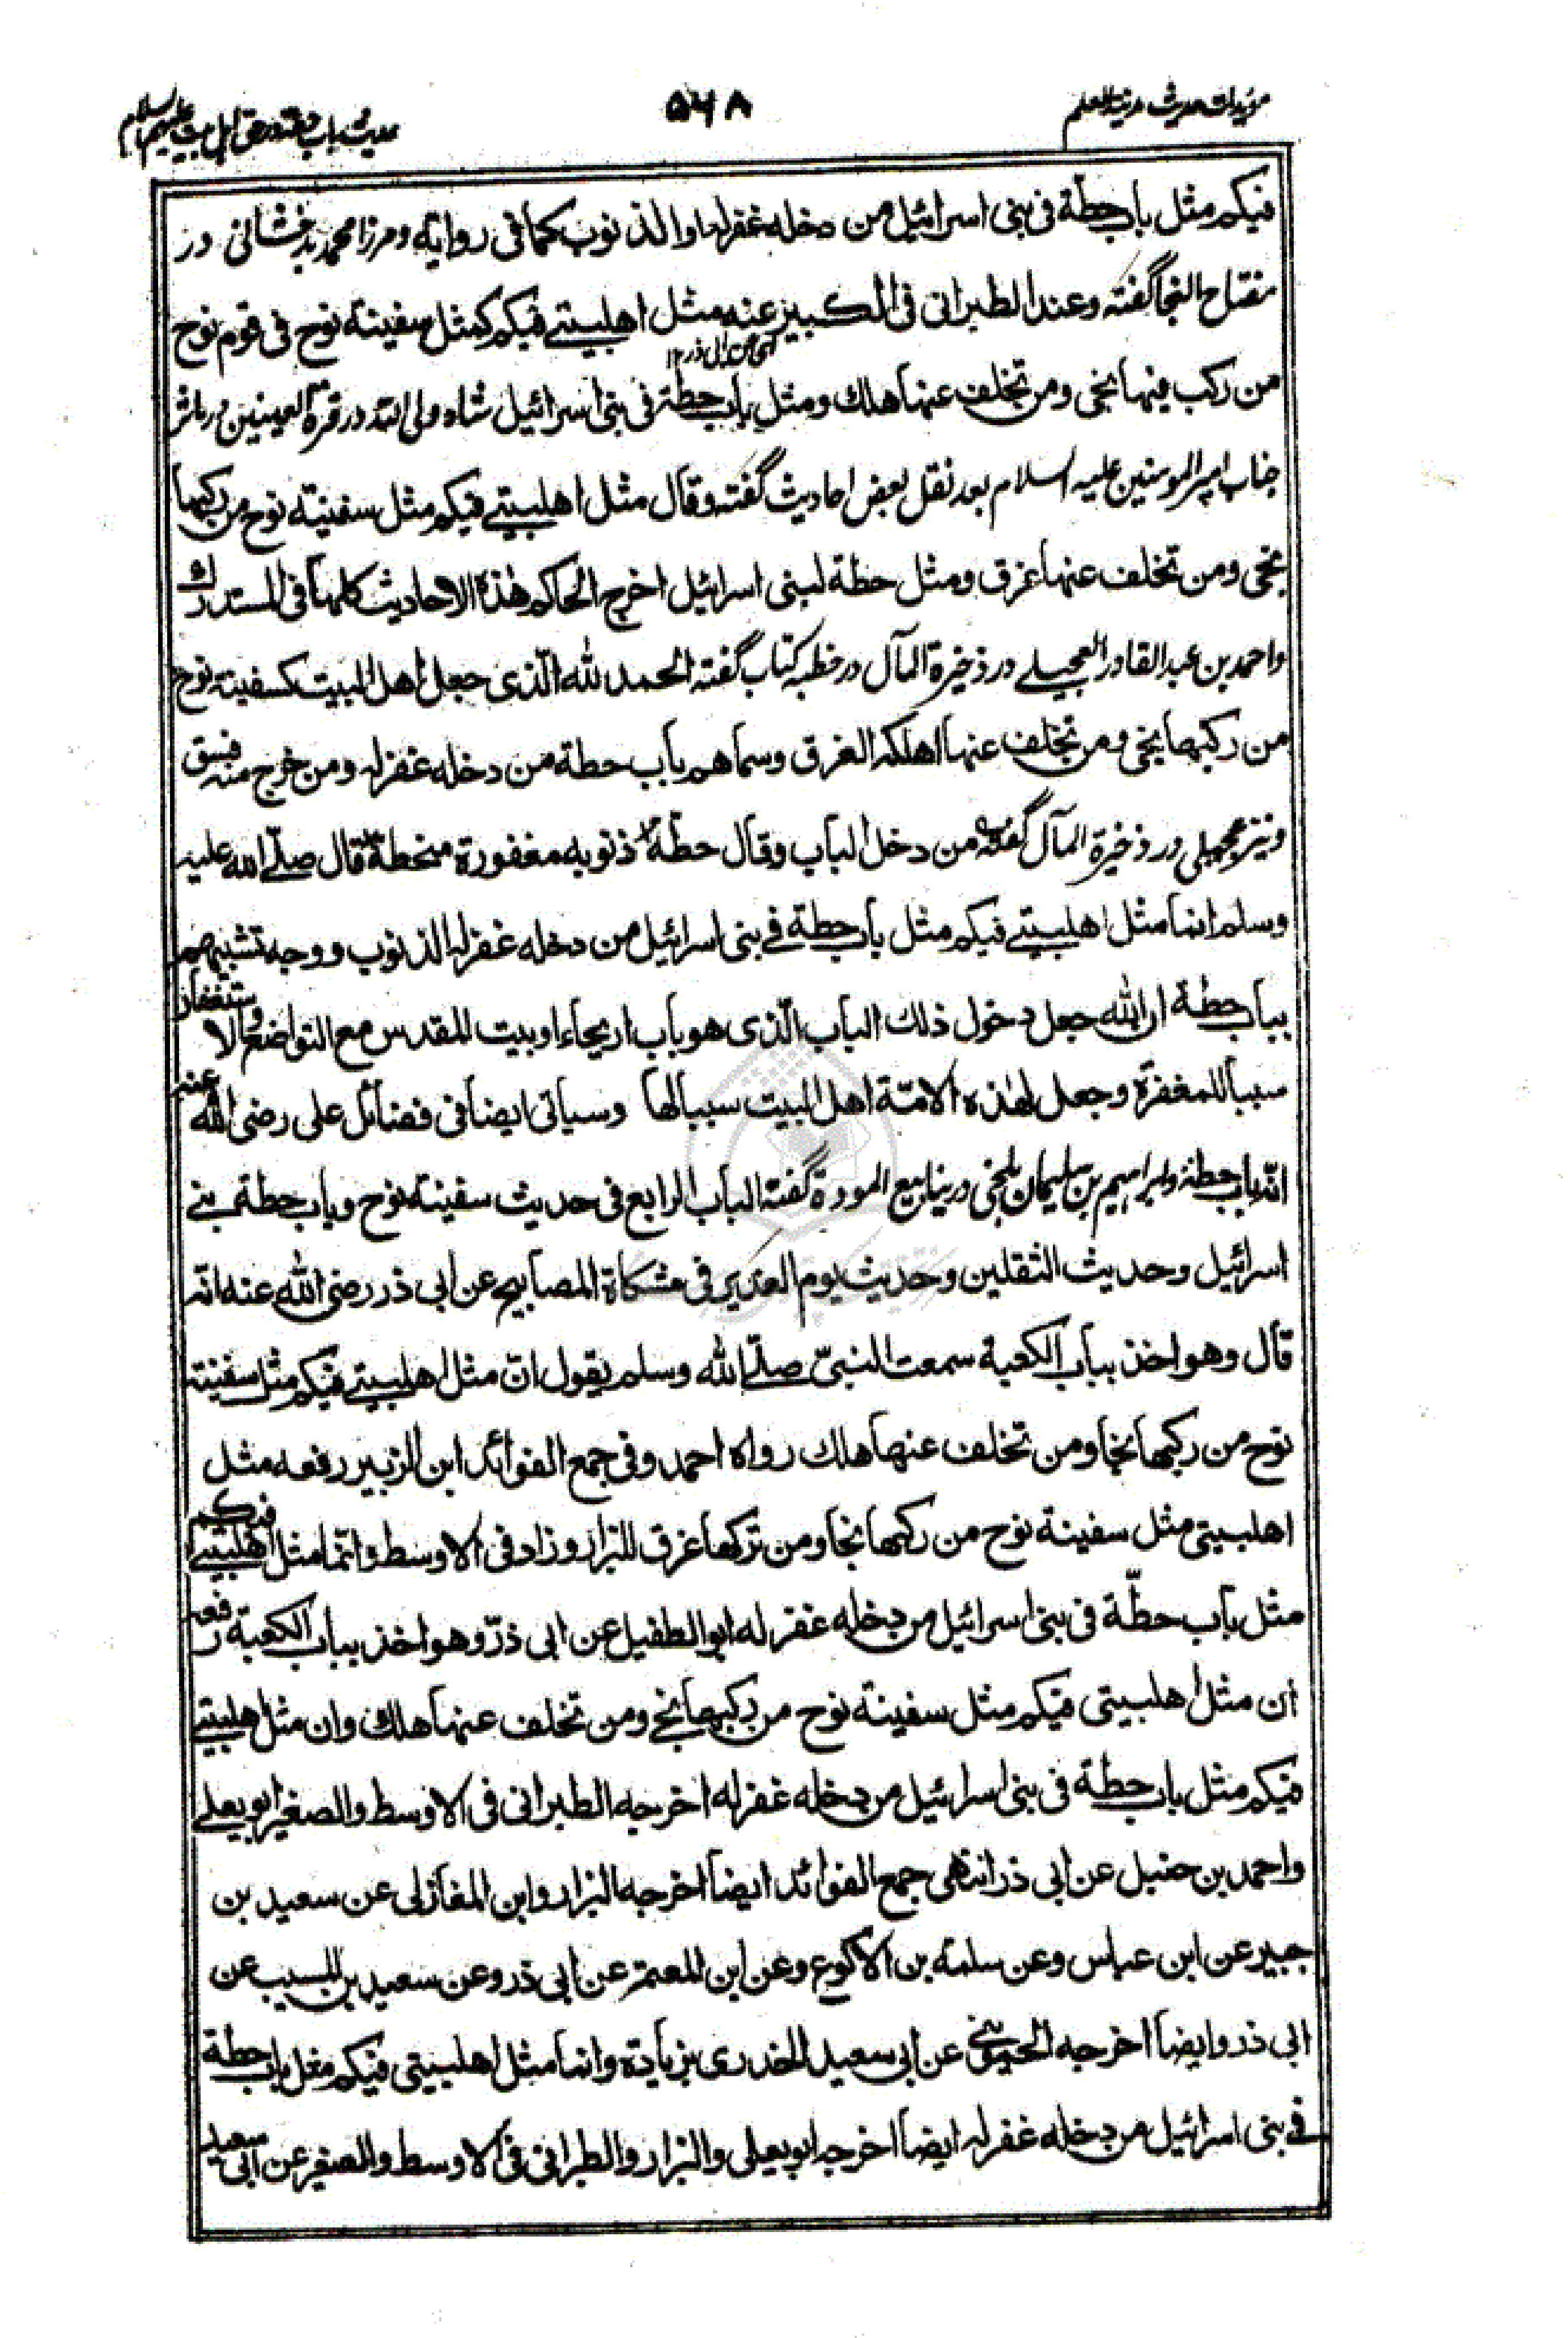 مؤيدات حديث مدينة العلم
۵۶۸
حديث باب حطه در حق اهل بيت عليهم السلام
فيكم مثل باب حطة فى بنى اسرائيل من دخله غفر له الذنوب كما فى رواية ومرزا محمد بدخشانى در
مفتاح النجا گفته وعند الطبرانى فى الكبير عنه مثل اهلبيتى فيكم كمثل سفينة نوح فى قوم نوح
اى عن ابى ذر ۱۲
من ركب فيها نجى ومن تخلف عنها هلك ومثل باب حطة فى بنى اسرائيل شاه ولى الله در قرة العينين در مآثر
جناب امير المومنين عليه السلام بعد نقل بعض احاديث گفته وقال مثل اهلبيتى فيكم مثل سفينة نوح من ركبها
نجى ومن تخلف عنها غرق ومثل حطة لبنى اسرائيل اخرج الحاكم هذه الاحاديث كلها فى المستدرك
واحمد بن عبد القادر العجيلى در ذخيرة المآل در خطبه كتاب گفته الحمد لله الّذى جعل اهل البيت كسفينة نوح
من ركبها نجى ومن تخلف عنها اهلكه الغرق وسماهم باب حطة من دخله غفر له ومن خرج منه فسق
ونيز عجيلى در ذخيرة المآل گفته من دخل الباب وقال حطة ذنوبه مغفورة منحطة قال صلّى الله عليه
وسلم انما مثل اهلبيتى فيكم مثل باب حطة فى بنى اسرائيل من دخله غفر له الذنوب ووجه تشبيههم
بباب حطة ان الله جعل دخول ذلك الباب الّذى هو باب اريحاء او بيت المقدس مع التواضع والاستغفار
سببا للمغفرة وجعل لهذه الامّة اهل البيت سببا لها وسياتى ايضا فى فضائل على رضى الله عنه
انه باب حطة وابراهيم بن سليمان بلخى در ينابيع المودة گفته الباب الرابع فى حديث سفينة نوح وباب حطة بنى
اسرائيل وحديث الثقلين وحديث يوم الغدير فى مشكاة المصابيح عن ابى ذر رضى الله عنه انّه
قال وهو اخذ بباب الكعبة سمعت النبىّ صلّى الله وسلم يقول انّ مثل اهلبيتى فيكم مثل سفينة
نوح من ركبها نجا ومن تخلف عنها هلك رواه احمد وفى جمع الفوائد ابن الزبير رفعه مثل
اهلبيتى مثل سفينة نوح من ركبها نجا ومن تركها غرق للبزار وزاد فى الاوسط وانّما مثل اهلبيتى فيكم
مثل باب حطّة فى بنى اسرائيل من دخله غفر له ابو الطفيل عن ابى ذرّ وهو اخذ بباب الكعبة رفعه
ان مثل اهلبيتى فيكم مثل سفينة نوح من ركبها نجى ومن تخلف عنها هلك وان مثل اهلبيتى
فيكم مثل باب حطة فى بنى اسرائيل من دخله غفر له اخرجه الطبرانى فى الاوسط والصغير ابو يعلى
واحمد بن حنبل عن ابى ذر انتهى جمع الفوائد ايضا اخرجه البزار وابن المغازلى عن سعيد بن
جبير عن ابن عباس وعن سلمة بن الاكوع وعن ابن المعتمر عن ابى ذر وعن سعيد بن المسيب عن
ابى ذر وايضا اخرجه الحموينى عن ابى سعيد الخدرى بزيادة وانما مثل اهلبيتى فيكم مثل باب حطة
فى بنى اسرائيل من دخله غفر له ايضا اخرجه ابو يعلى والبزار والطبرانى فى الاوسط والصغير عن ابى سعيد